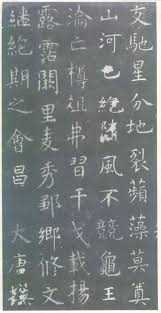 交馳星分地裂蘋藻莫奠
山河已絕隤風不競龜王
淪亡樽俎弗習干戈載揚
露霑闕里麥秀鄒鄉修文
繼絕期之會昌 大唐撫